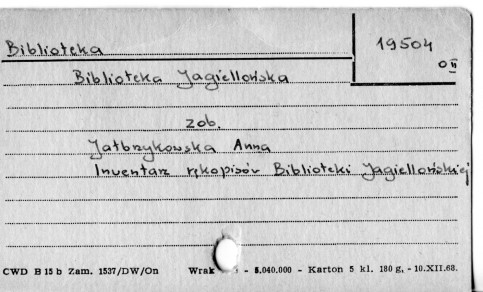 Biblioteka
19504
o II
Biblioteka Jagiellońska
zob.
Jałbrzykowska Anna
Inwentarz rękopisów Biblioteki Jagiellońskiej
CWD B 15 b Zam. 1537/DW/On Wrak - 5.040.000 - Karton 5 kl. 180 g, - 10.XII.68.